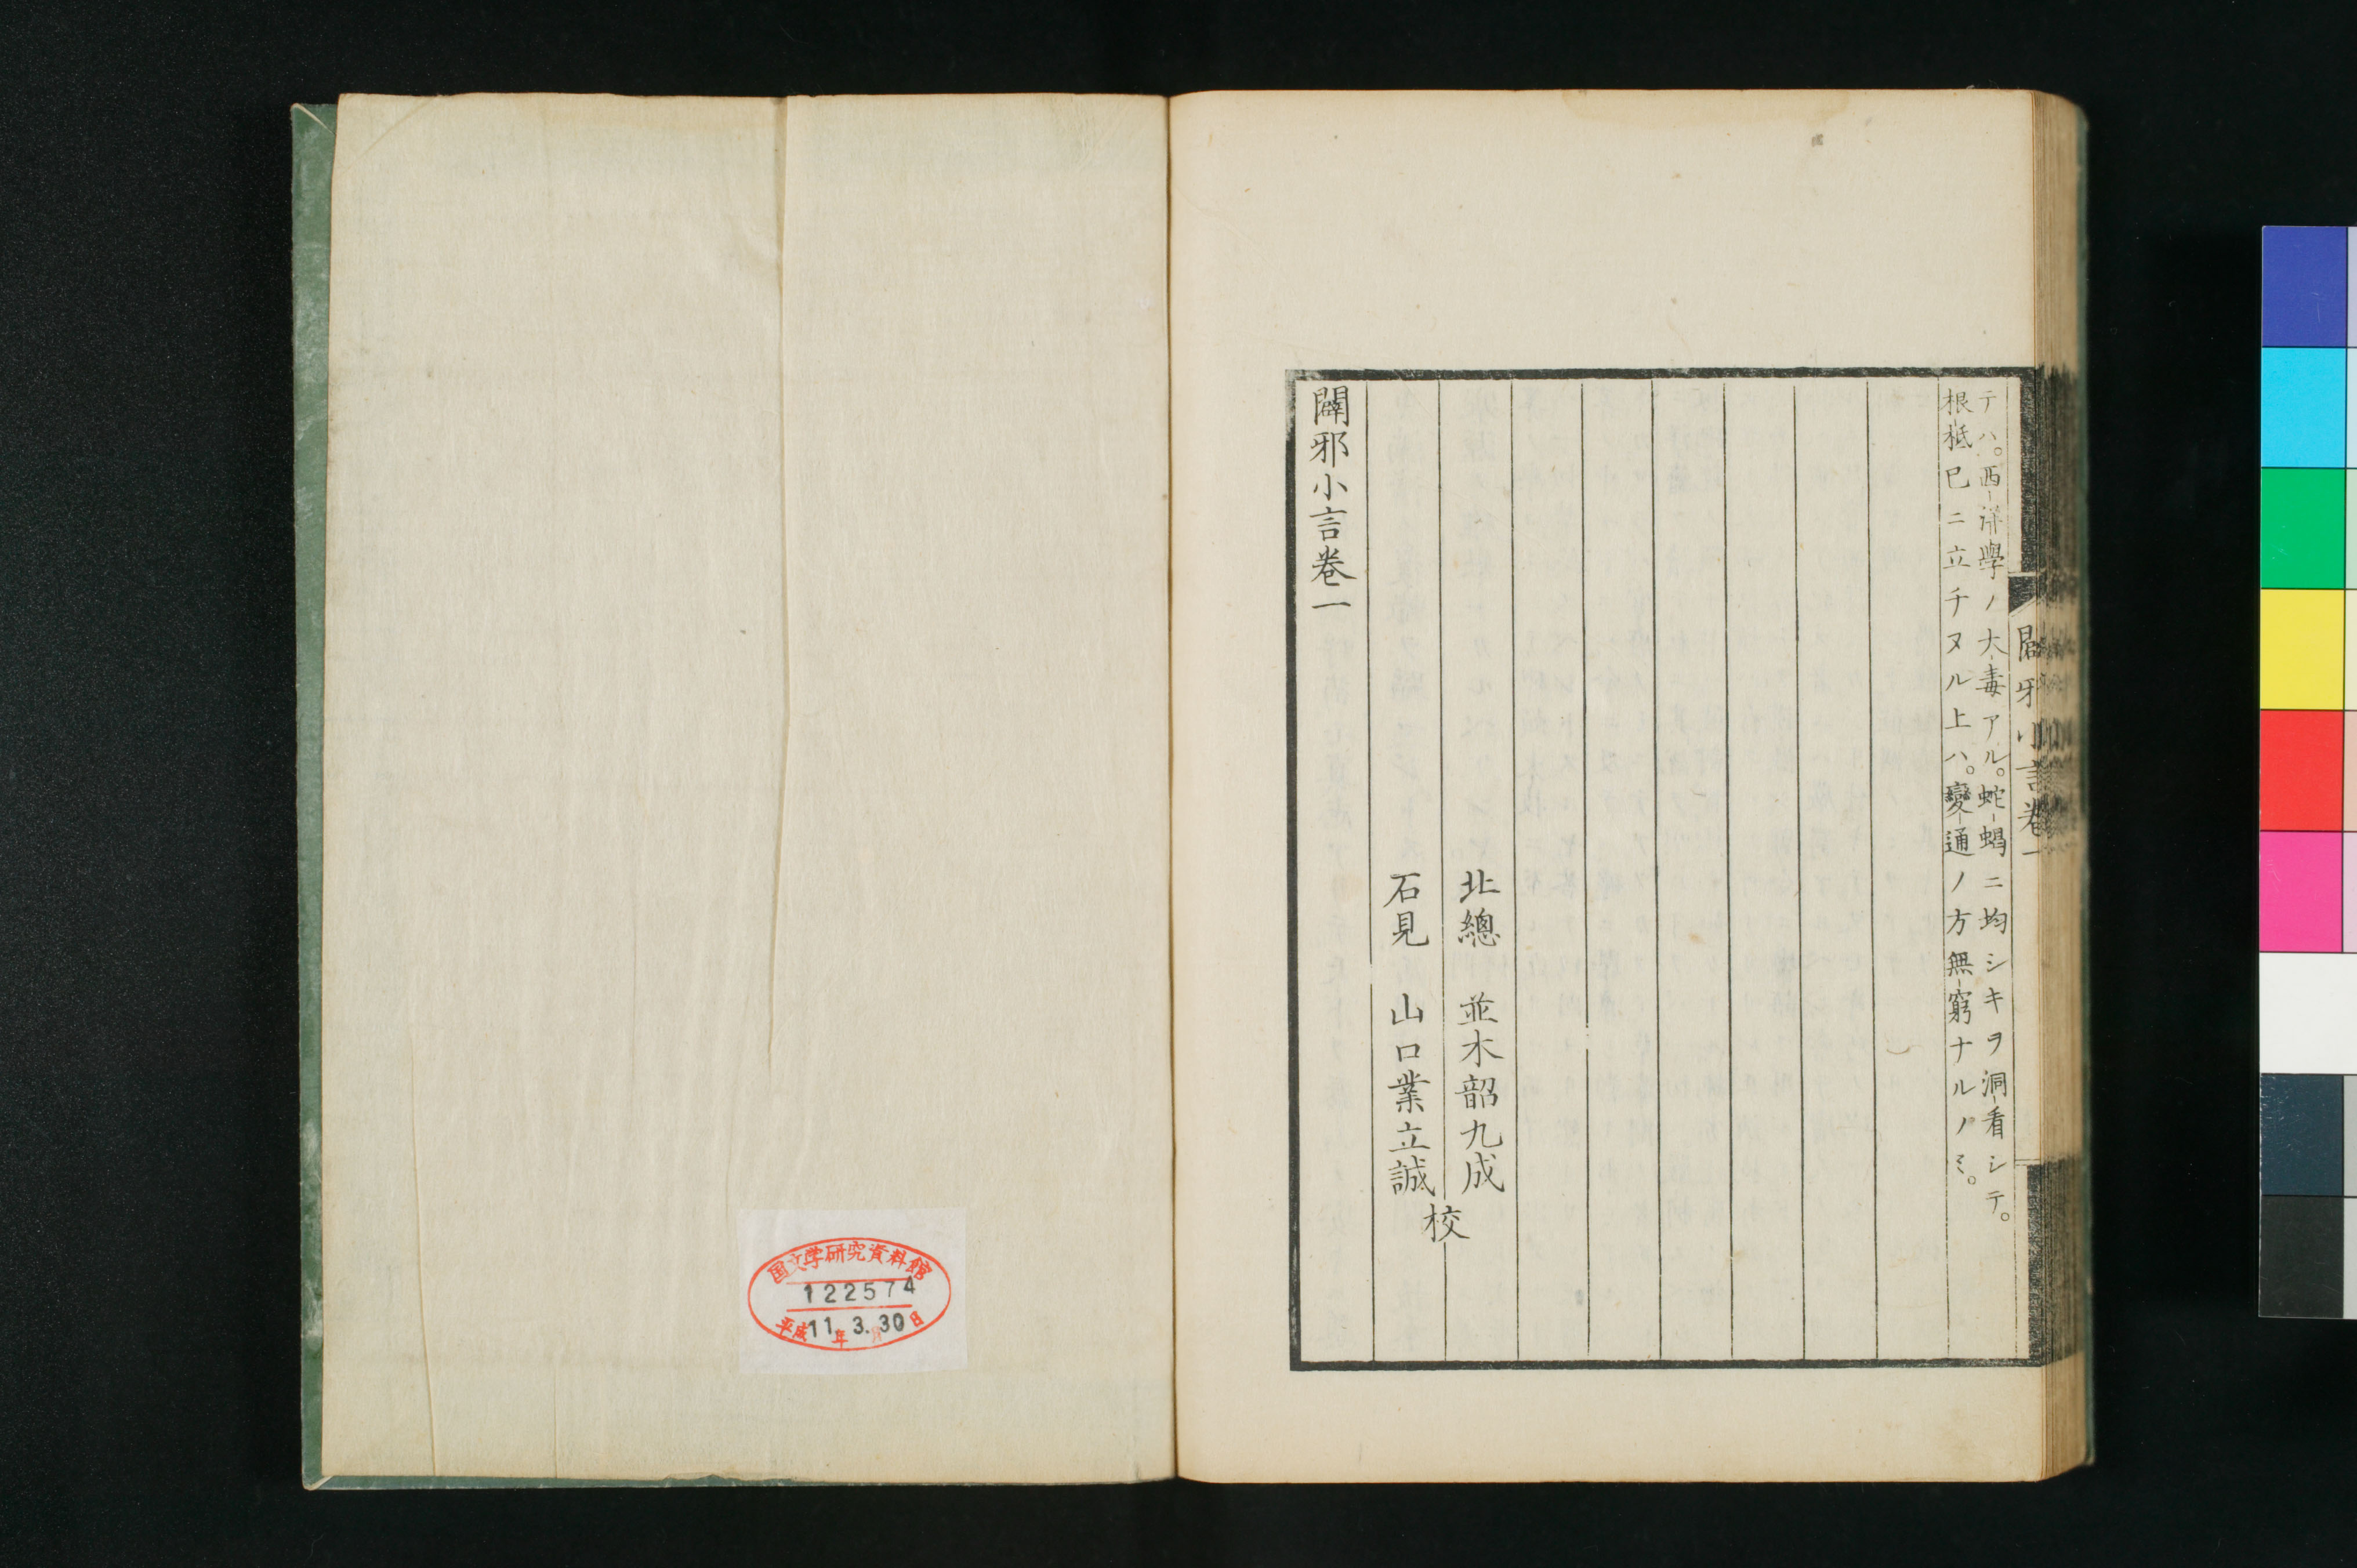 テハ。西洋學ノ大毒アル。蛇蝎ニ均シキヲ洞看シテ。
根柢已ニ立チヌル上ハ。變通ノ方無窮ナルノミ。
北總 並木韶九成
石見 山口業立誠
校
闢邪小言卷一
闢邪小言卷一
国文学研究資料館
122574
平成11年3.30日